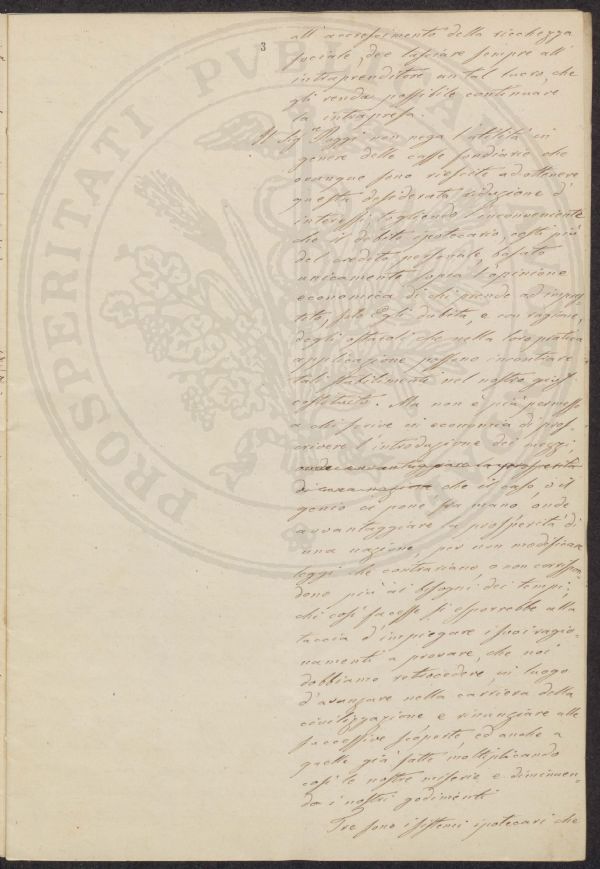 3
all'accrescimento della ricchezza
sociale, dee lasciare sempre all'
intraprenditore un tal lucro, che
gli renda possibile continuare
la intrapresa.
Il Sig.r Poggi non nega l'utilità in
genere delle casse fondiarie che
ovunque sono riescite ad ottenere
questa desiderata riduzione d'
interessi, togliendo l'inconveniente
che il debito ipotecario, costi più
del credito personale, basato
unicamente sopra l'opinione
economica di chi prende ad impres-
tito, solo Egli dubita, e con ragione,
degli ostacoli che nella loro pratica
applicazione possono incontrare
tali stabilimenti nel nostro gius
costituito. Ma non è più permesso
a chi scrive in economia di pros-
crivere l'introduzione dei mezzi,
onde avvantaggiare la prosperità
di una nazione che il caso, o il
genio ci pone fra mano, onde
avvantaggiare la prosperità d'
una nazione, per non modificare
leggi che contrariano, o non corrispon-
dono più ai bisogni dei tempi;
chi così facesse si esporrebbe alla
taccia d'impiegare i suoi ragio-
namenti a provare, che noi
dobbiamo retrocedere, in luogo
d'avanzare nella carriera della
civilizzazione e rinunziare alle
successive scoperte, ed anche a
quelle già fatte moltiplicando
così le nostre miserie e diminuen-
do i nostri godimenti
Tre sono i sistemi ipotecari che
PROSPERITATI PUBLICAE